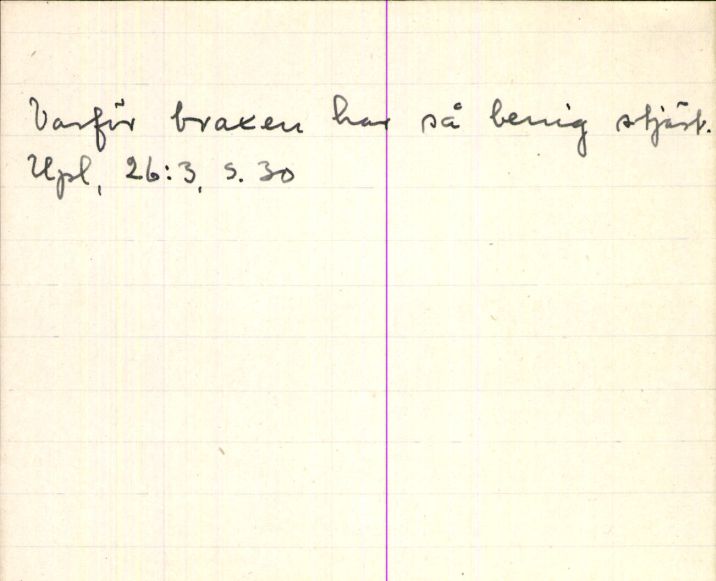 Varför braxen har så benig stjärt.
Upl, 26:3, s. 30